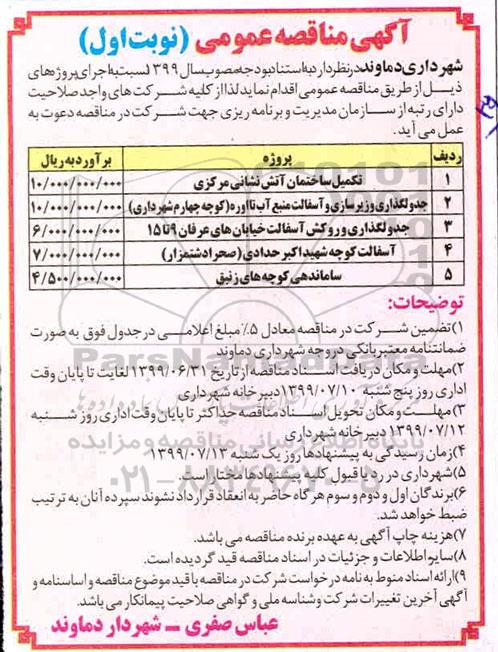 آگهی مناقصه عمومی (نوبت اول)
شهرداری دماوند در نظر دارد به استناد بودجه مصوب سال ۱۳۹۹ نسبت به اجرای پروژه های
ذیل از طریق مناقصه عمومی اقدام نماید لذا از کلیه شرکت های واجد صلاحیت
دارای رتبه از سازمان مدیریت و برنامه ریزی جهت شرکت در مناقصه دعوت به
عمل می آید.
ردیف پروژه برآورد به ریال
۱ تکمیل ساختمان آتش نشانی مرکزی ۱۰/۰۰۰/۰۰۰/۰۰۰
۲ جدولگذاری و زیرسازی و آسفالت منبع آب تا اوره (کوچه چهارم شهرداری) ۱۰/۰۰۰/۰۰۰/۰۰۰
۳ جدولگذاری و روکش آسفالت خیابان های عرفان ۹ تا ۱۵ ۶/۰۰۰/۰۰۰/۰۰۰
۴ آسفالت کوچه شهید اکبر حدادی (صحرا دشتمزار) ۷/۰۰۰/۰۰۰/۰۰۰
۵ ساماندهی کوچه های زنبق ۴/۵۰۰/۰۰۰/۰۰۰
توضیحات:
۱) تضمین شرکت در مناقصه معادل ۵٪ مبلغ اعلامی در جدول فوق به صورت
ضمانتنامه معتبر بانکی در وجه شهرداری دماوند
۲) مهلت و مکان دریافت اسناد مناقصه از تاریخ ۱۳۹۹/۰۶/۳۱ لغایت تا پایان وقت
اداری روز پنج شنبه ۱۳۹۹/۰۷/۱۰ دبیرخانه شهرداری
۳) مهلت و مکان تحویل اسناد مناقصه حداکثر تا پایان وقت اداری روز شنبه
۱۳۹۹/۰۷/۱۲ دبیرخانه شهرداری
۴) زمان رسیدگی به پیشنهادها روز یک شنبه ۱۳۹۹/۰۷/۱۳
۵) شهرداری در رد یا قبول کلیه پیشنهادها مختار است.
۶) برندگان اول و دوم و سوم هرگاه حاضر به انعقاد قرارداد نشوند سپرده آنان به ترتیب
ضبط خواهد شد.
۷) هزینه چاپ آگهی به عهده برنده مناقصه می باشد.
۸) سایر اطلاعات و جزئیات در اسناد مناقصه قید گردیده است.
۹) ارائه اسناد منوط به نامه درخواست شرکت در مناقصه با قید موضوع مناقصه و اساسنامه و
آگهی آخرین تغییرات شرکت و شناسه ملی و گواهی صلاحیت پیمانکار می باشد.
عباس صفری – شهردار دماوند
ParsNamad
پایگاه اطلاع رسانی مناقصه و مزایده
۰۲۱-۸۸۳۴۹۶۷۰-۵